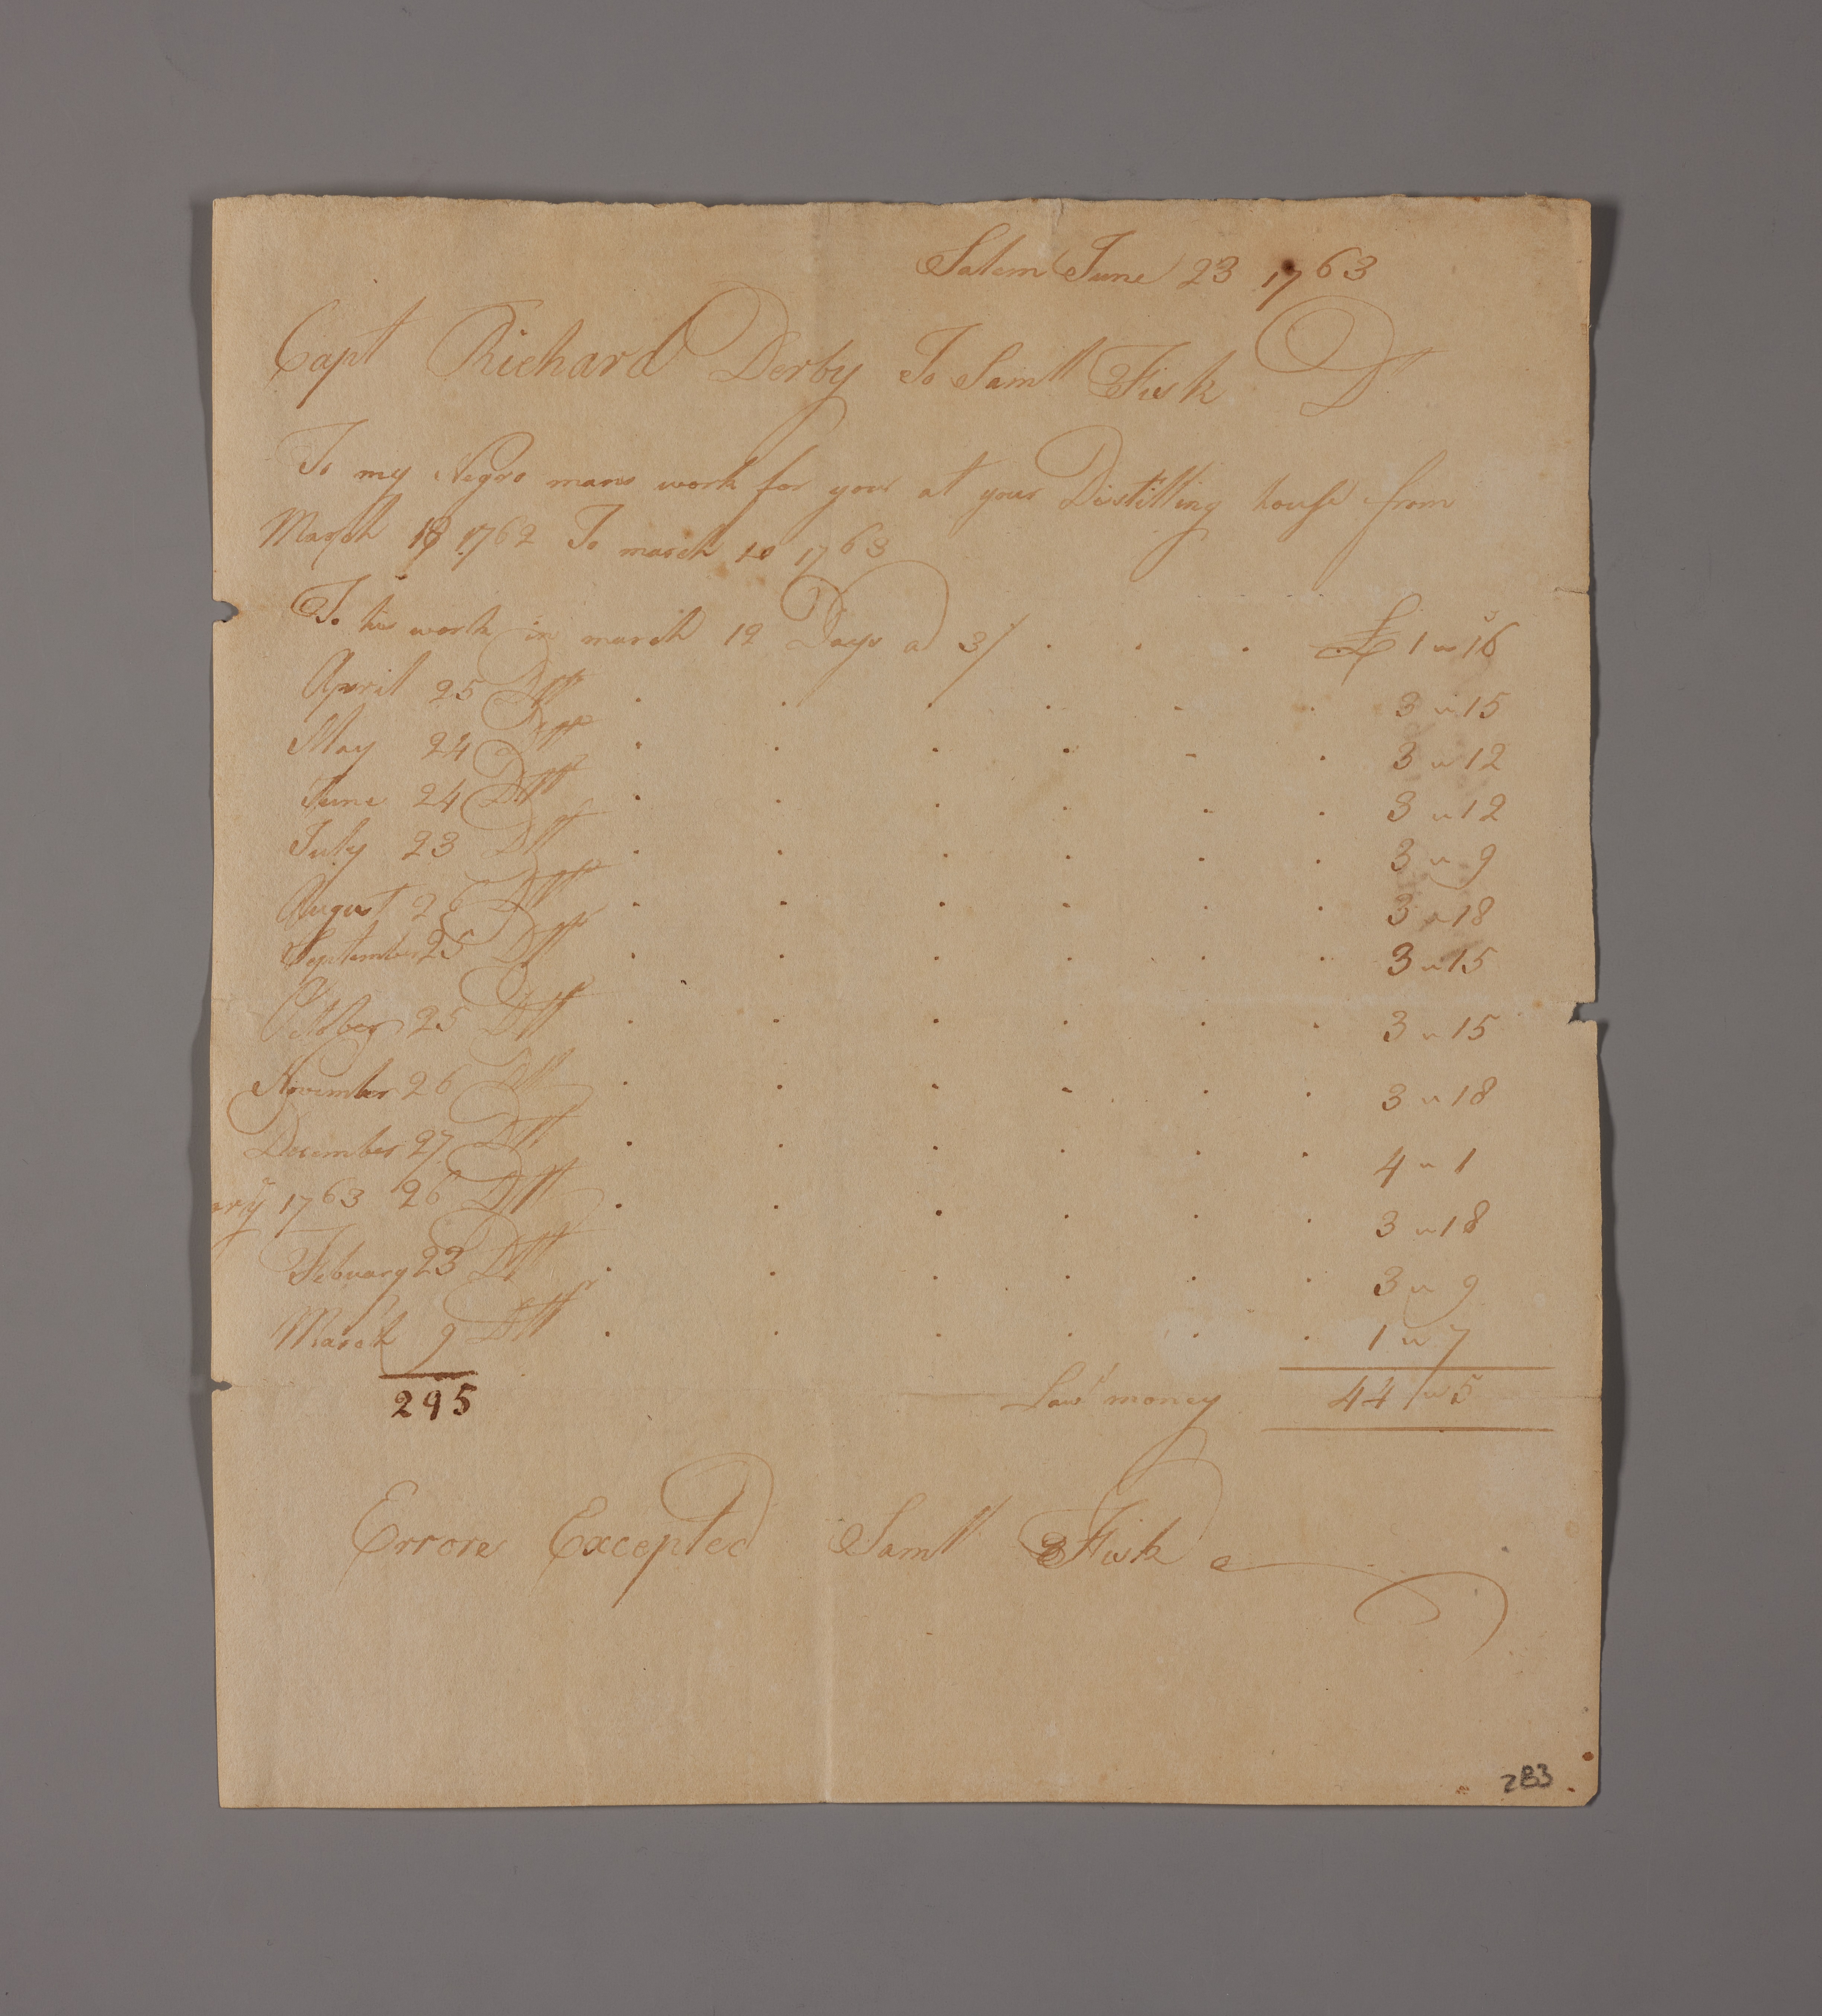 Salem June 23 1763
Capt Richard Derby To Samll Fisk Dr
To my Negro mans work for you at your Distilling house from
March 18 1762 To march 10 1763
To his work in march 12 Days a 3/ . . . £ 1 " 16
April 25 Dtt . . . . . . 3 " 15
May 24 Dtt . . . . . . 3 " 12
June 24 Dtt . . . . . . 3 " 12
July 23 Dtt . . . . . . 3 " 9
August 26 Dtt . . . . . . 3 " 18
September 25 Dtt . . . . . . 3 " 15
October 25 Dtt . . . . . . 3 " 15
November 26 Dtt . . . . . . 3 " 18
December 27 Dtt . . . . . . 4 " 1
ary 1763 26 Dtt . . . . . . 3 " 18
Febuary 23 Dtt . . . . . . 3 " 9
March 9 Dtt . . . . . . 1 " 7
295 Lawll money 44 " 5
Errors Excepted Samll Fisk
283